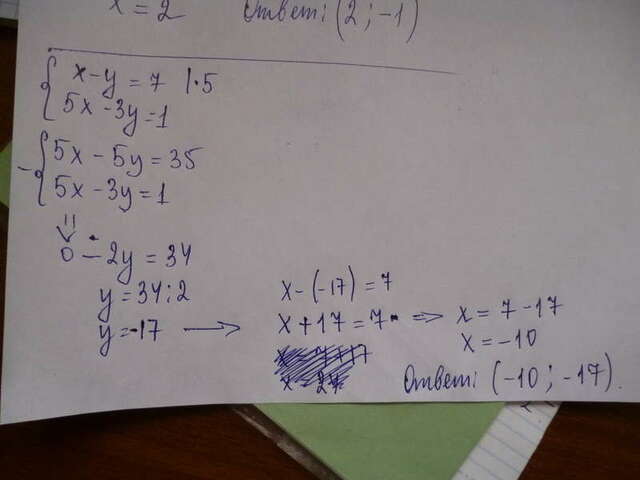 x = 2 Ответ: (2; -1)
x - y = 7 | · 5
5x - 3y = 1
- 5x - 5y = 35
5x - 3y = 1
0 - 2y = 34
y = 34 : 2
y = -17 →
x - (-17) = 7
x + 17 = 7 ⇒ x = 7 - 17
x = -10
Ответ: (-10; -17).